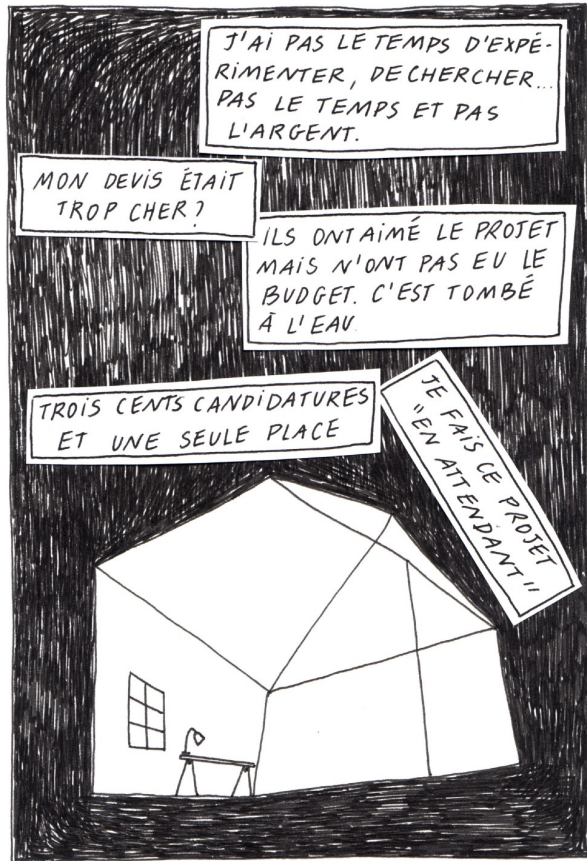 J'AI PAS LE TEMPS D'EXPÉ-
RIMENTER, DE CHERCHER...
PAS LE TEMPS ET PAS
L'ARGENT.
MON DEVIS ÉTAIT
TROP CHER?
ILS ONT AIMÉ LE PROJET
MAIS N'ONT PAS EU LE
BUDGET. C'EST TOMBÉ
À L'EAU.
TROIS CENTS CANDIDATURES
ET UNE SEULE PLACE
JE FAIS CE PROJET
"EN ATTENDANT"